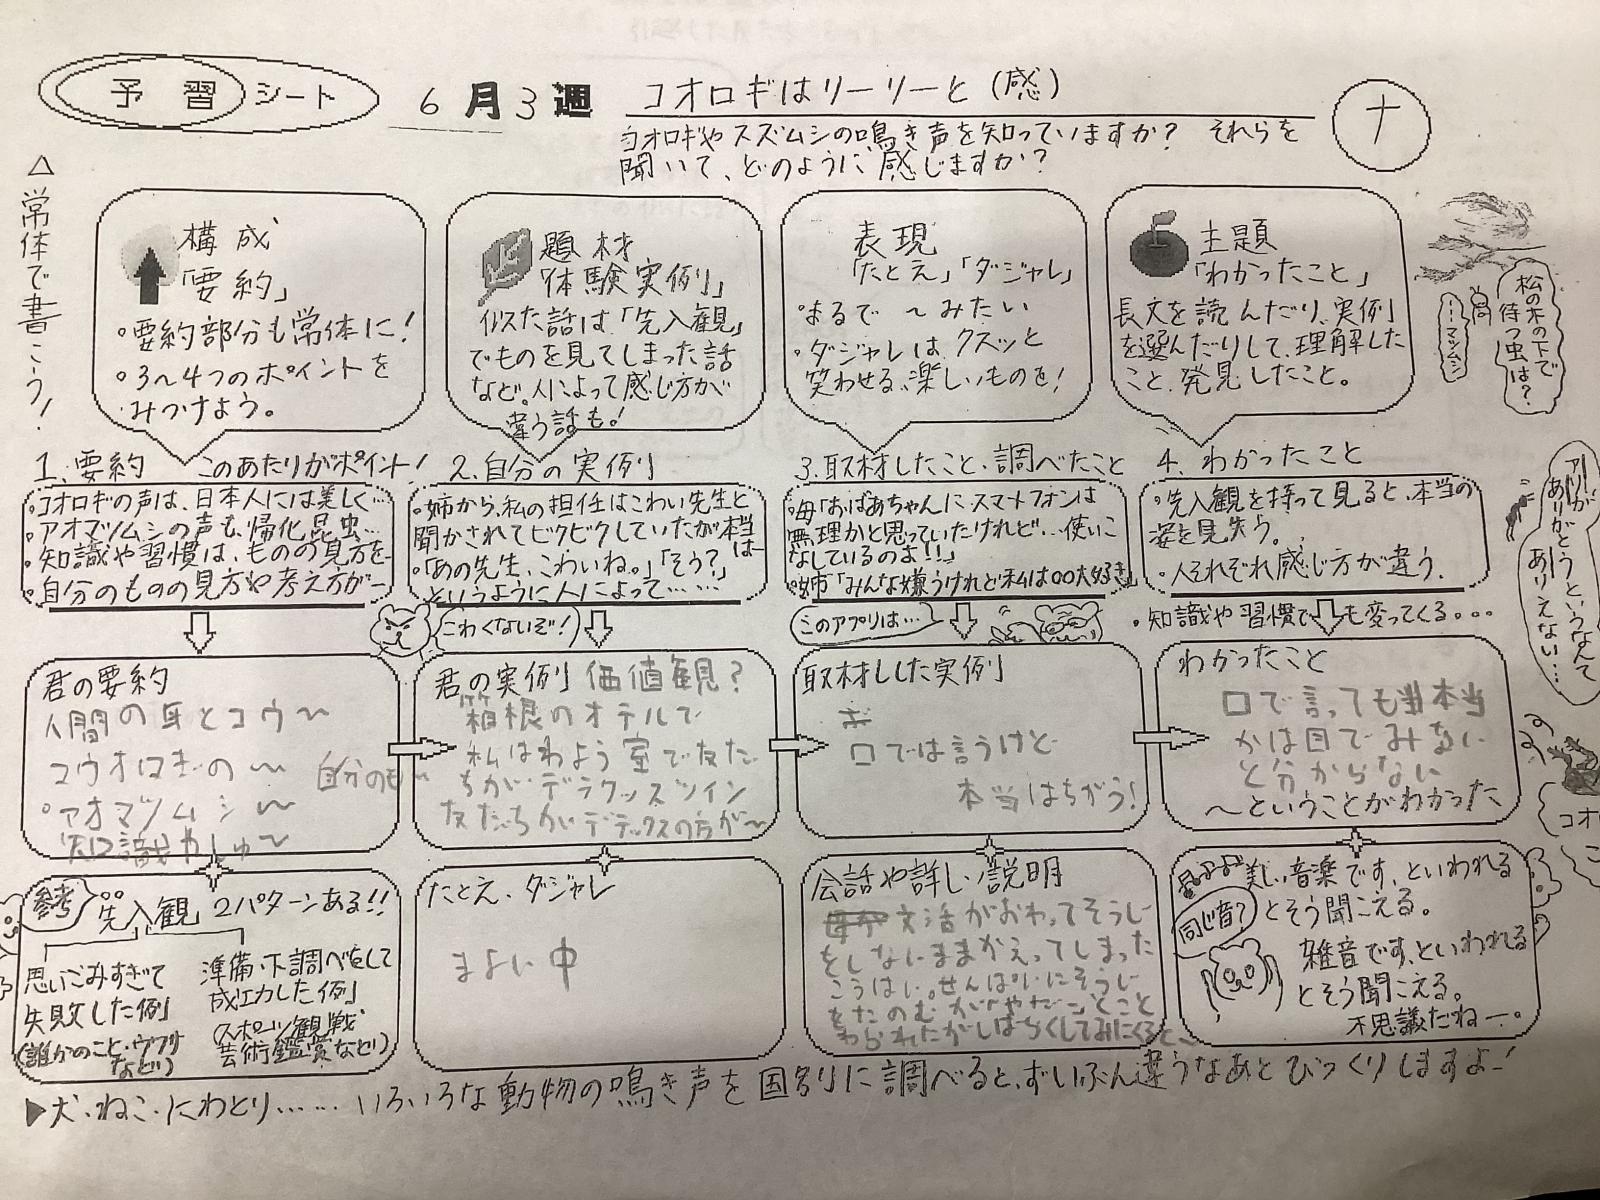 予習シート 6月3週 コオロギはリーリーと(感) ナ
コオロギやスズムシの鳴き声を知っていますか? それらを
聞いて、どのように感じますか?
△常体で書こう!
構成
「要約」
・要約部分も常体に!
・3~4つのポイントを
みつけよう。
題材
「体験実例」
似た話は、「先入観」
でものを見てしまった話
など。人によって感じ方が
違う話も!
表現
「たとえ」「ダジャレ」
・まるで ~みたい
・ダジャレは、クスッと
笑わせる、楽しいものを!
主題
「わかったこと」
長文を読んだり、実例
を選んだりして、理解した
こと、発見したこと。
松の木の下で
待つ虫は?
…マツムシ
1.要約 このあたりがポイント!
・コオロギの声は、日本人には美しく…
・アオマツムシの声も、帰化昆虫…
・知識や習慣は、ものの見方を
・自分のものの見方や考え方が―
2.自分の実例
・姉から、私の担任はこわい先生と
聞かされてビクビクしていたが本当は…
・「あの先生、こわいね。」「そう?」
というように人によって……
こわくないぞ!
3.取材したこと、調べたこと
・母「おばあちゃんにスマートフォンは
無理かと思っていたけれど…使いこ
なしているのよ!!」
・姉「みんな嫌うけれど私は○○大好き」
このアプリは…
4.わかったこと
・先入観を持って見ると、本当の
姿を見失う。
・人それぞれ感じ方が違う。
・知識や習慣でも変ってくる。…
アリが
ありがとうというなんて
ありえない…
君の要約
人間の耳とコウ~
コウオロギの~ 自分のも~
・アオマツムシ~
知識やしゅ~
君の実例 価値観?
箱根のオテルで
私はわよう室で友だ
ちがデラックスツイン
友だちがデラックスの方が~
取材した実例
口では言うけど
本当はちがう!
わかったこと
口で言っても本当
かは目でみない
と分からない
~ということがわかった
コオ
参考
先入観 2パターンある!!
思いこみすぎて
失敗した例
(誰かのこと・ウワサ
など)
準備・下調べをして
成功した例
(スポーツ観戦
芸術鑑賞など)
たとえ、ダジャレ
まよい中
会話や詳しい説明
文活がおわってそうじ
をしないままかえってしまった
こうはい。せんぱいにそうじ
をたのむが「やだ」とこと
わられたがしばらくしてみにくると、
美しい音楽です、といわれる
とそう聞こえる。
同じ音?
雑音です、といわれる
とそう聞こえる。
不思議だねー。
▶犬・ねこ・にわとり……いろいろな動物の鳴き声を国別に調べると、ずいぶん違うなあとびっくりしますよ!